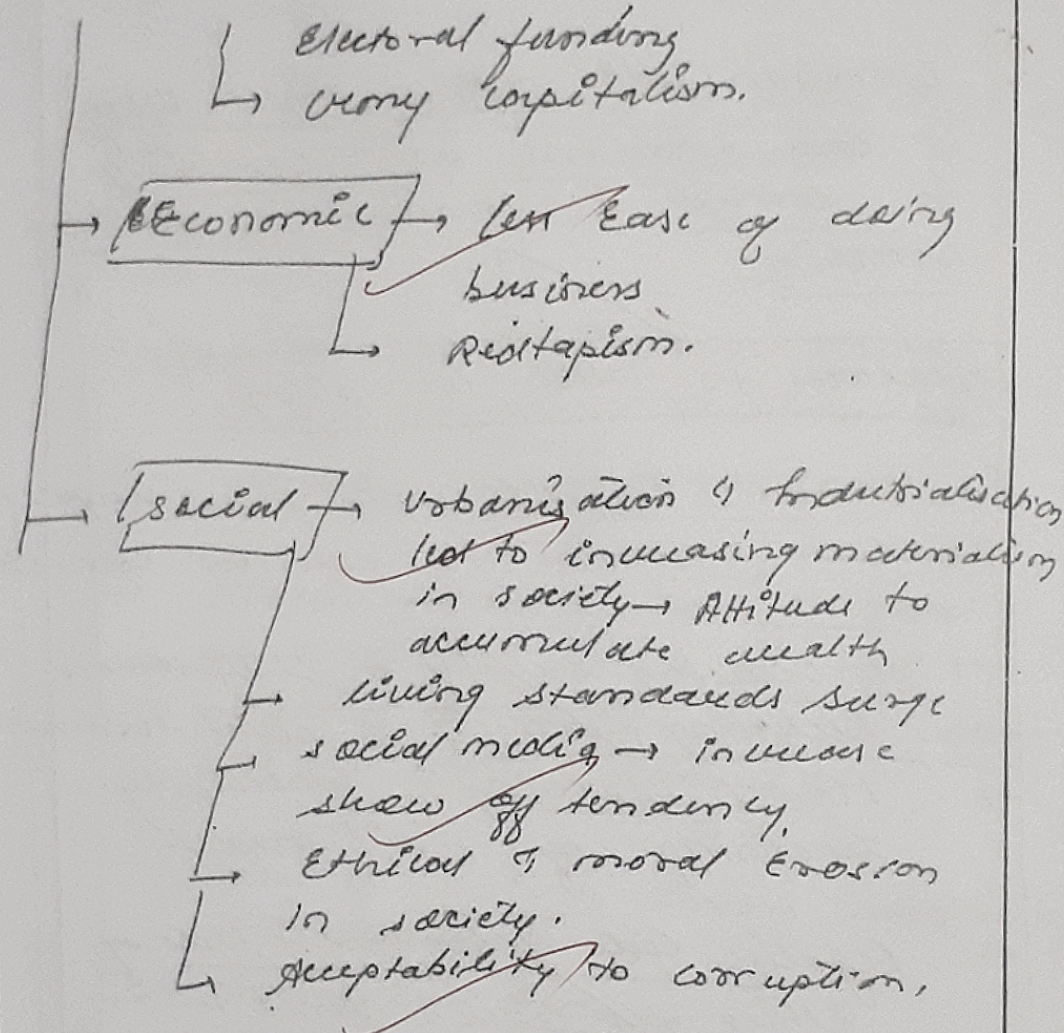 Electoral funding
crony capitalism.
Economic → less Ease of doing
business
Redtapism.
social → Urbanisation & Industrialisation
led to increasing materialism
in society → Attitude to
accumulate wealth
living standards surge
social media → increase
show off tendency
Ethical & moral Erosion
in society.
Acceptability to corruption.